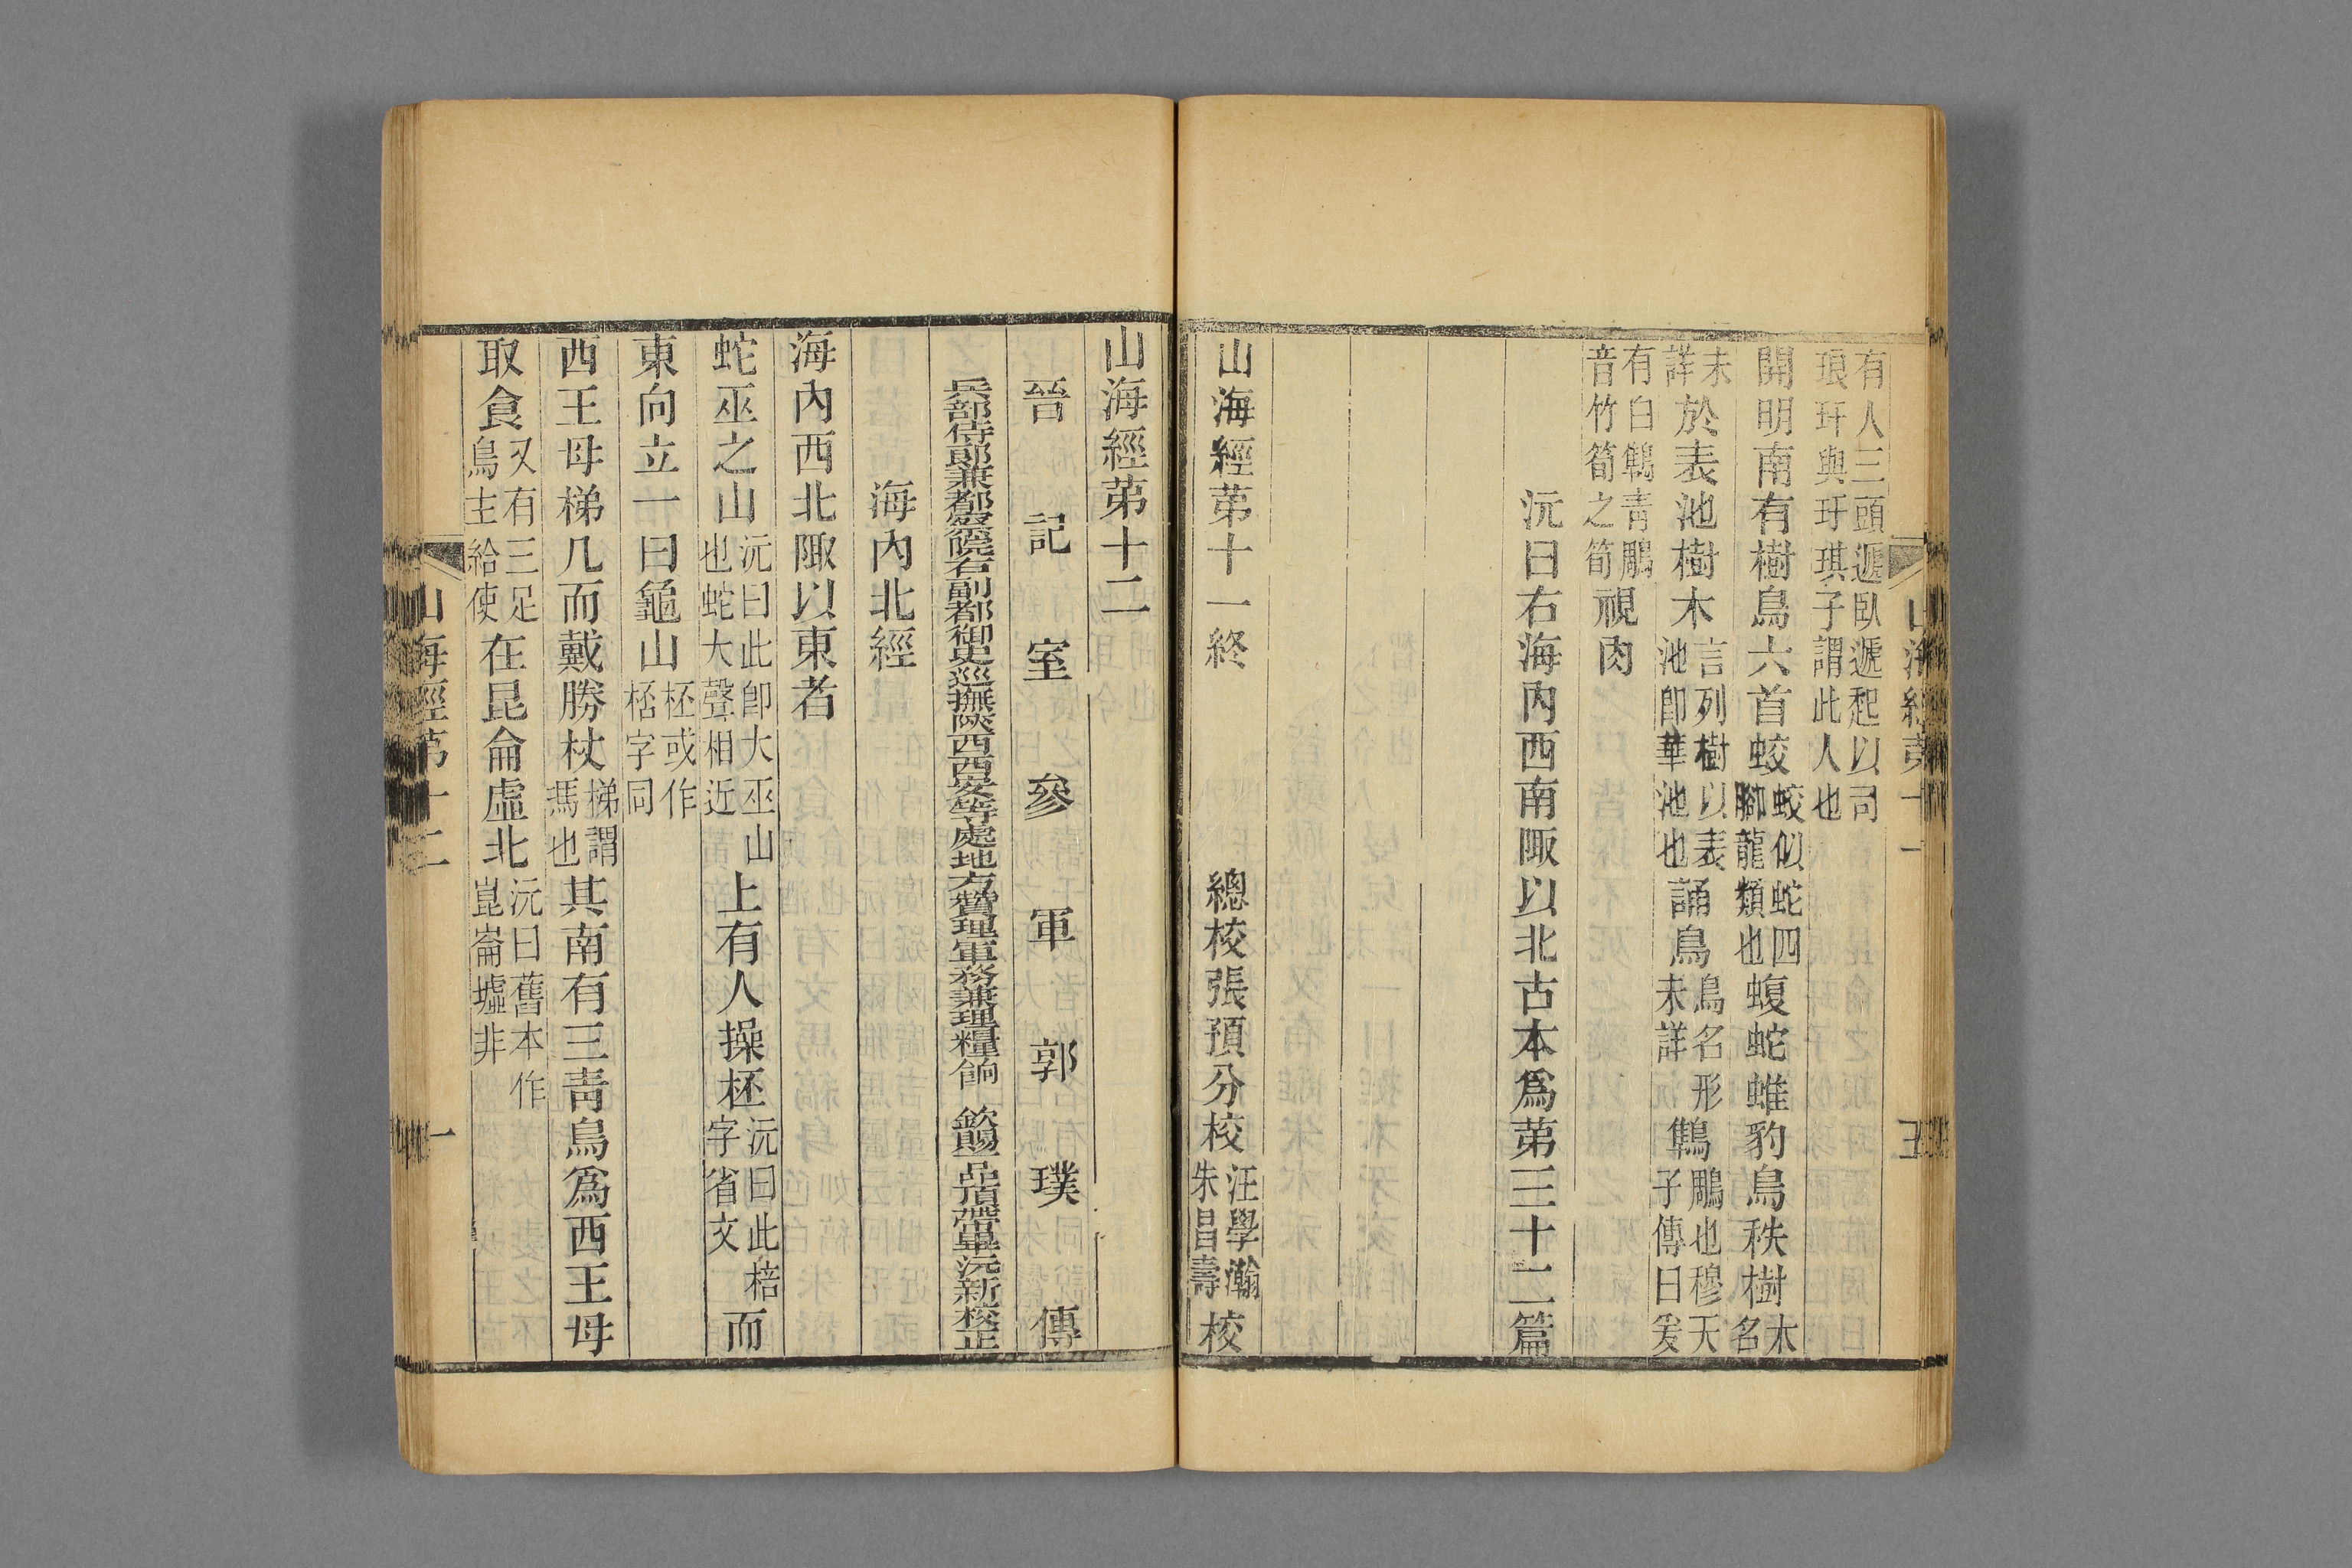 山海經第十一
五
有人三頭遞臥遞起以司
琅玕與玗琪子謂此人也
開明南有樹鳥六首蛟蛟似蛇四
腳龍類也蝮蛇蜼豹鳥秩樹木
名
未
詳於表池樹木言列樹以表
池卽華池也誦鳥鳥名形
未詳鶽鵰也穆天
子傳曰爰
有白鶽青鵰
音竹筍之筍視肉
沅曰右海內西南陬以北古本爲第三十二篇
山海經第十一終 總校張預分校汪學瀚
朱昌壽校
山海經第十二
晉記室參軍郭璞傳
兵部侍郞兼都察院右副都御史巡撫陝西西安等處地方贊理軍務兼理糧餉 欽賜一品頂帶畢沅新校正
海內北經
海內西北陬以東者
蛇巫之山沅曰此卽大巫山
也蛇大聲相近上有人操柸沅曰此棓
字省文而
東向立一曰龜山柸或作
棓字同
西王母梯几而戴勝杖梯謂
馮也其南有三青鳥爲西王母
取食又有三足
鳥主給使在昆侖虛北沅曰舊本作
崑崙墟非
山海經第十二
一